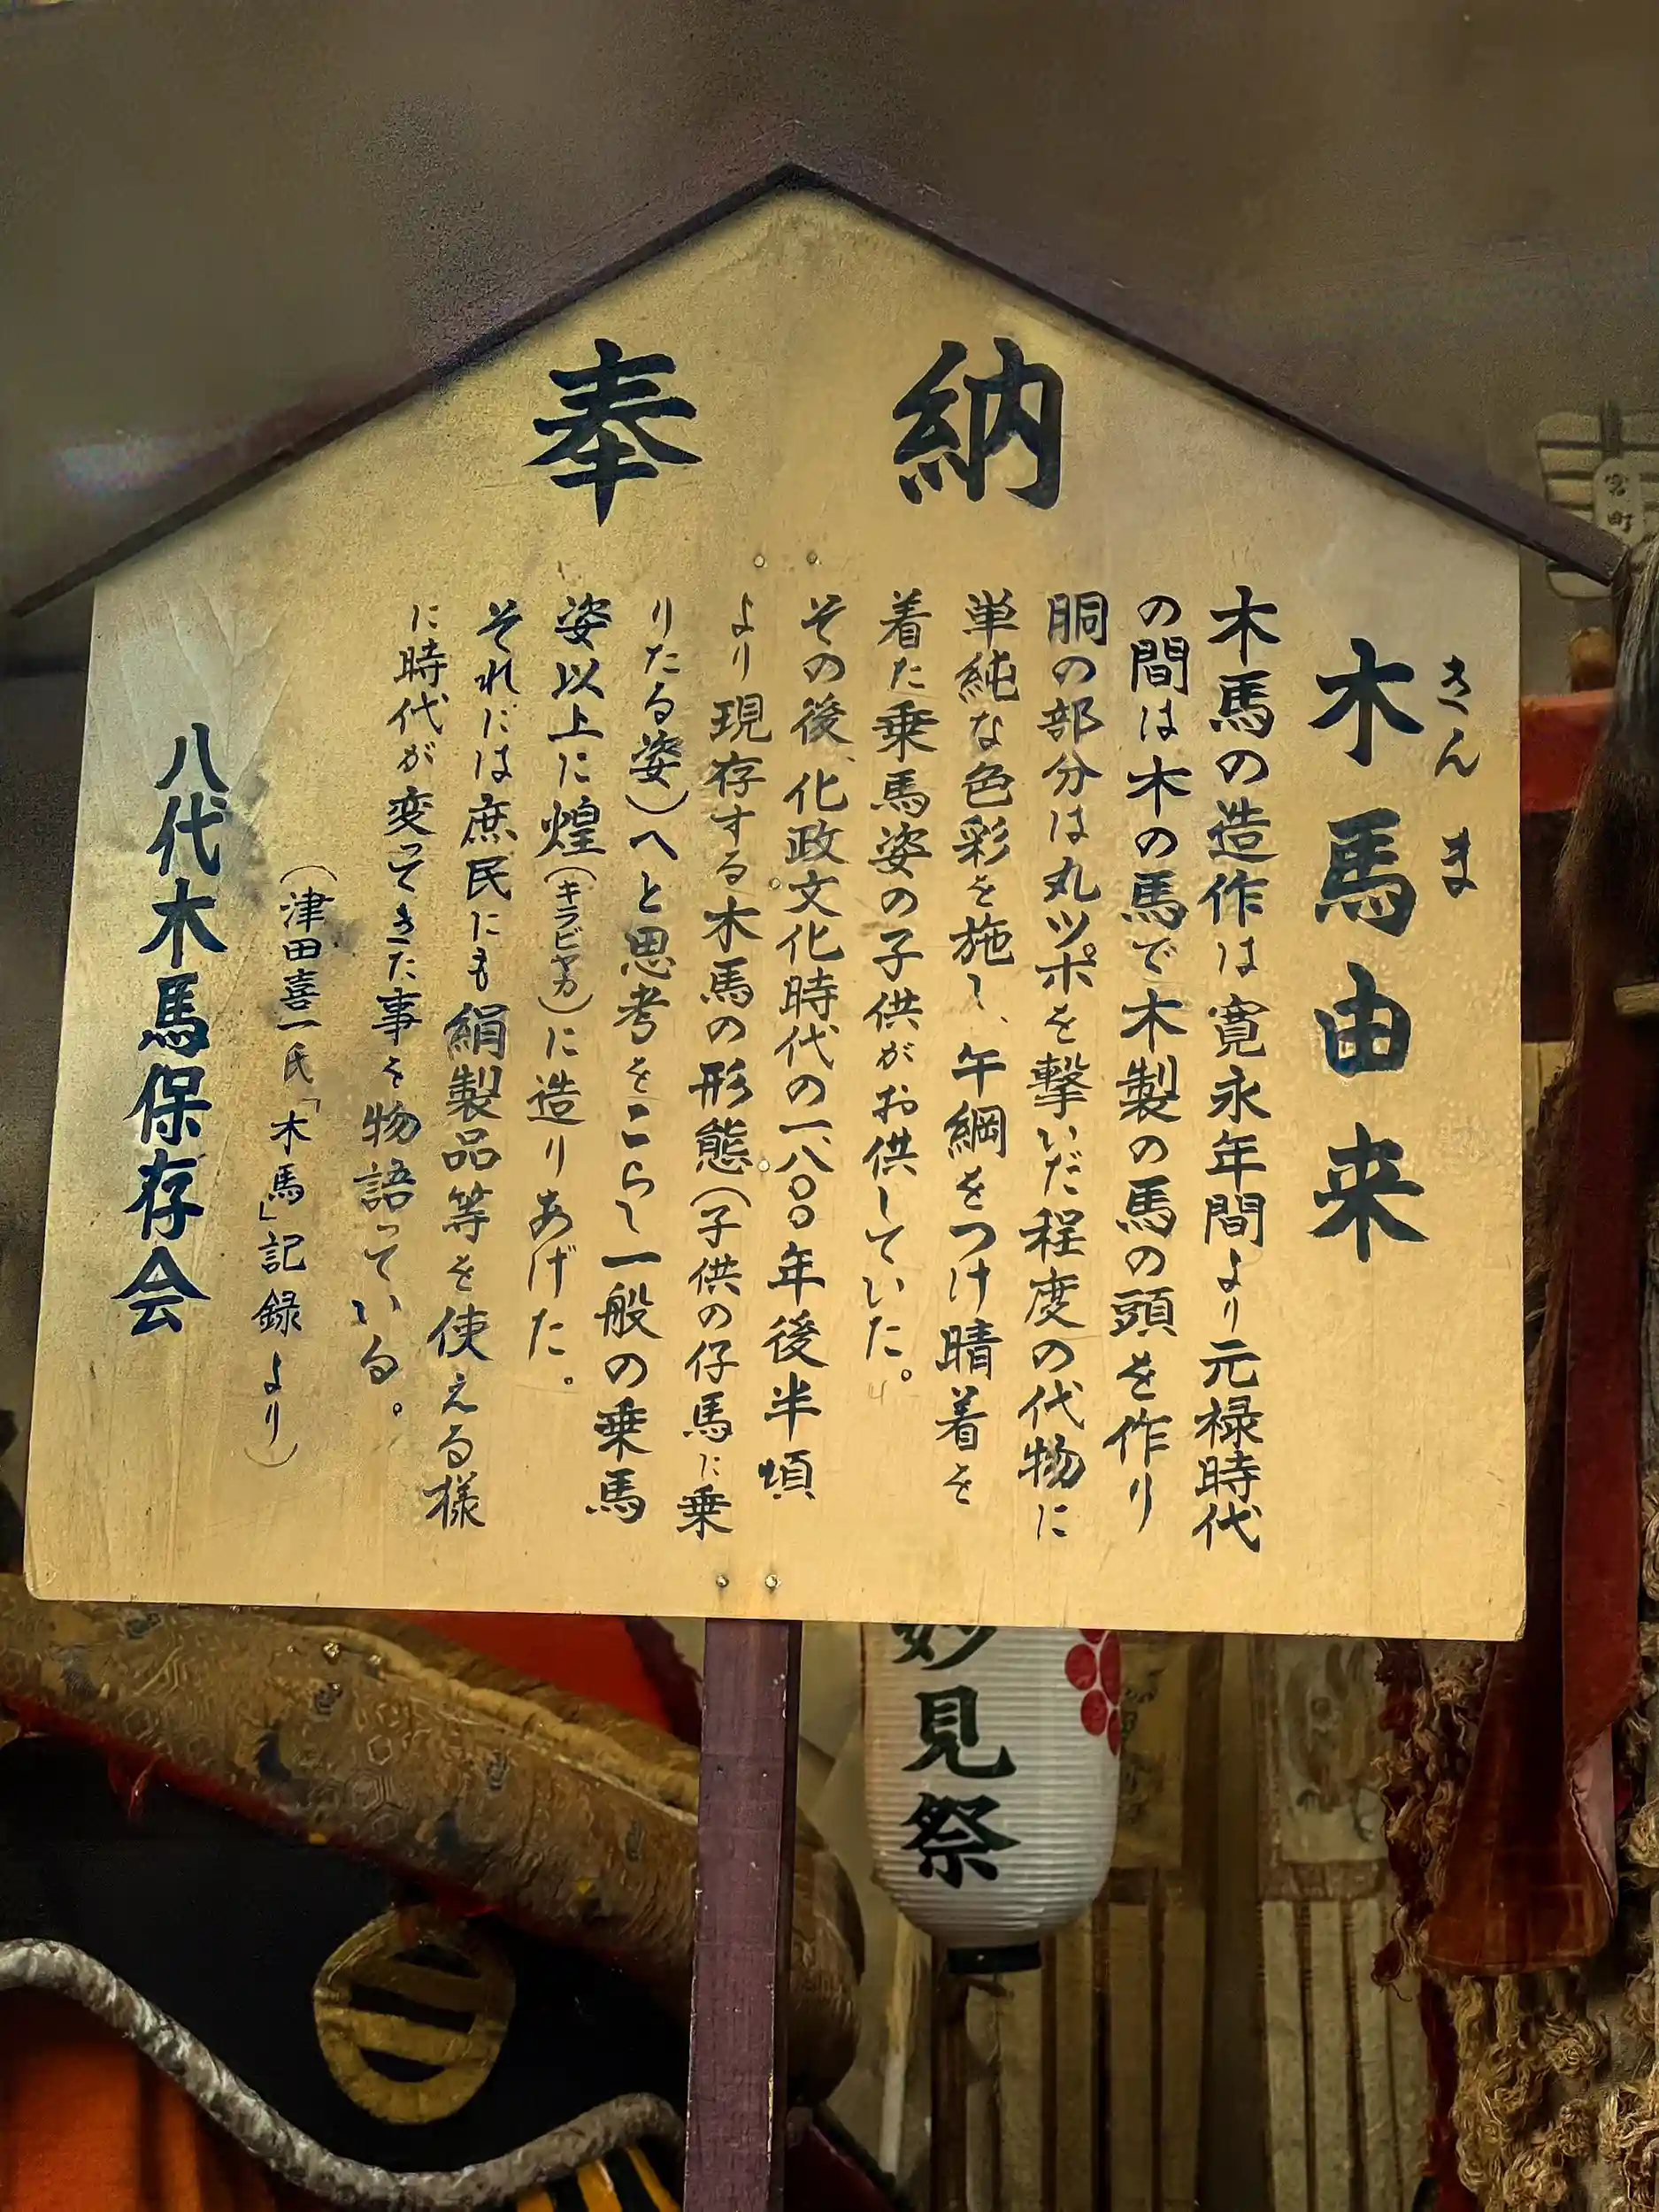 奉納
木馬由来
きんま
木馬の造作は寛永年間より元禄時代
の間は木の馬で木製の馬の頭を作り
胴の部分は丸ツポを撃いだ程度の代物に
単純な色彩を施し、午綱をつけ晴着を
着た乗馬姿の子供がお供していた。
その後、化政文化時代の一八〇〇年後半頃
より現存する木馬の形態(子供の仔馬に乗
りたる姿)へと思考をこらし一般の乗馬
姿以上に煌(キラビヤカ)に造りあげた。
それには庶民にも絹製品等を使える様
に時代が変ってきた事を物語っている。
(津田喜一氏「木馬」記録より)
八代木馬保存会
妙見祭
宮町